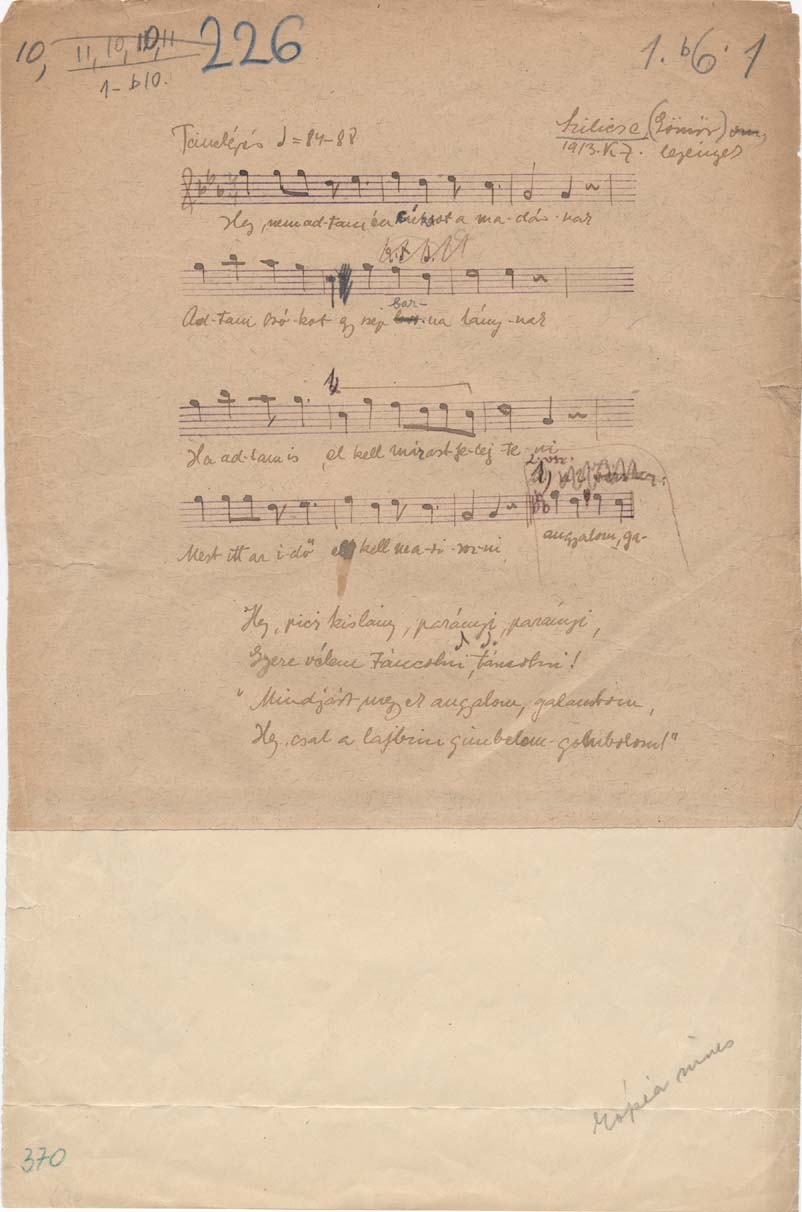 10, 11, 10, 10, 11 226 1. b6. 1
1- b10.
Tánclépés = 84–88 Szilicse, (Gömör)
1913. legények
Hej, nem ad-tam én csókot a ma-dár-nak
Ad-tam csó-kot egy szép bar-na lány-nak
1,
Ha ad-tam is, el kell már azt fe-lej-te-ni
2. vsz.
1,
Mert itt az i-dő el kell ma-si-roz-ni angyalom, ga-
Hej, pici kislány, parányi, parányi,
Gyere vélem táncolni, táncolni!
"Mindjárt megyek angyalom, galambom,
Hej, csak a lajbim gimbelem-gombolom!"
kópia nincs
370